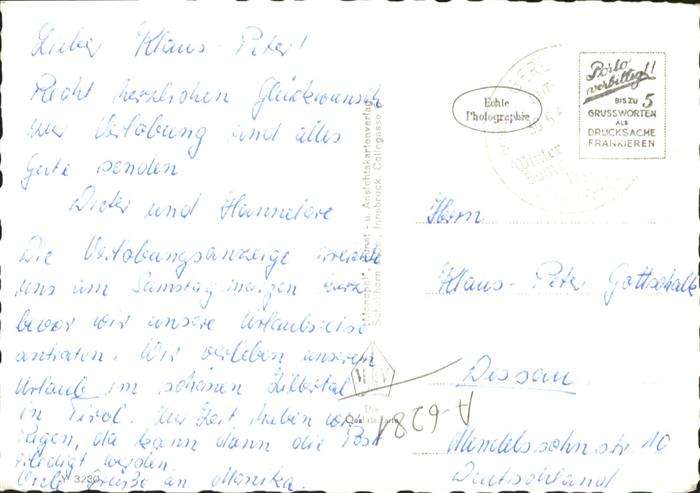 Lieber Klaus-Peter!
Recht herzlichen Glückwunsch
zur Verlobung und alles
Gute senden
Dieter und Hannelore
Die Verlobungsanzeige erreichte
uns am Samstag morgen kurz
bevor wir unsere Urlaubsreise
antraten. Wir verleben unseren
Urlaub im schönen Zillertal
in Tirol. Zur Zeit haben wir
Regen, da kann dann die Post
erledigt werden.
Viele Grüße an Monika.
3280
Echte
Photographie
Porto
verbilligt!!
BIS ZU 5
GRUSSWORTEN
ALS
DRUCKSACHE
FRANKIEREN
Winter
Kunst- u. Ansichtskartenverlag
Innsbruck, Colingasse
Herrn
Klaus-Peter Gottschalk
Dessau
Mendelssohnstr. 10
Deutschland
A 6281